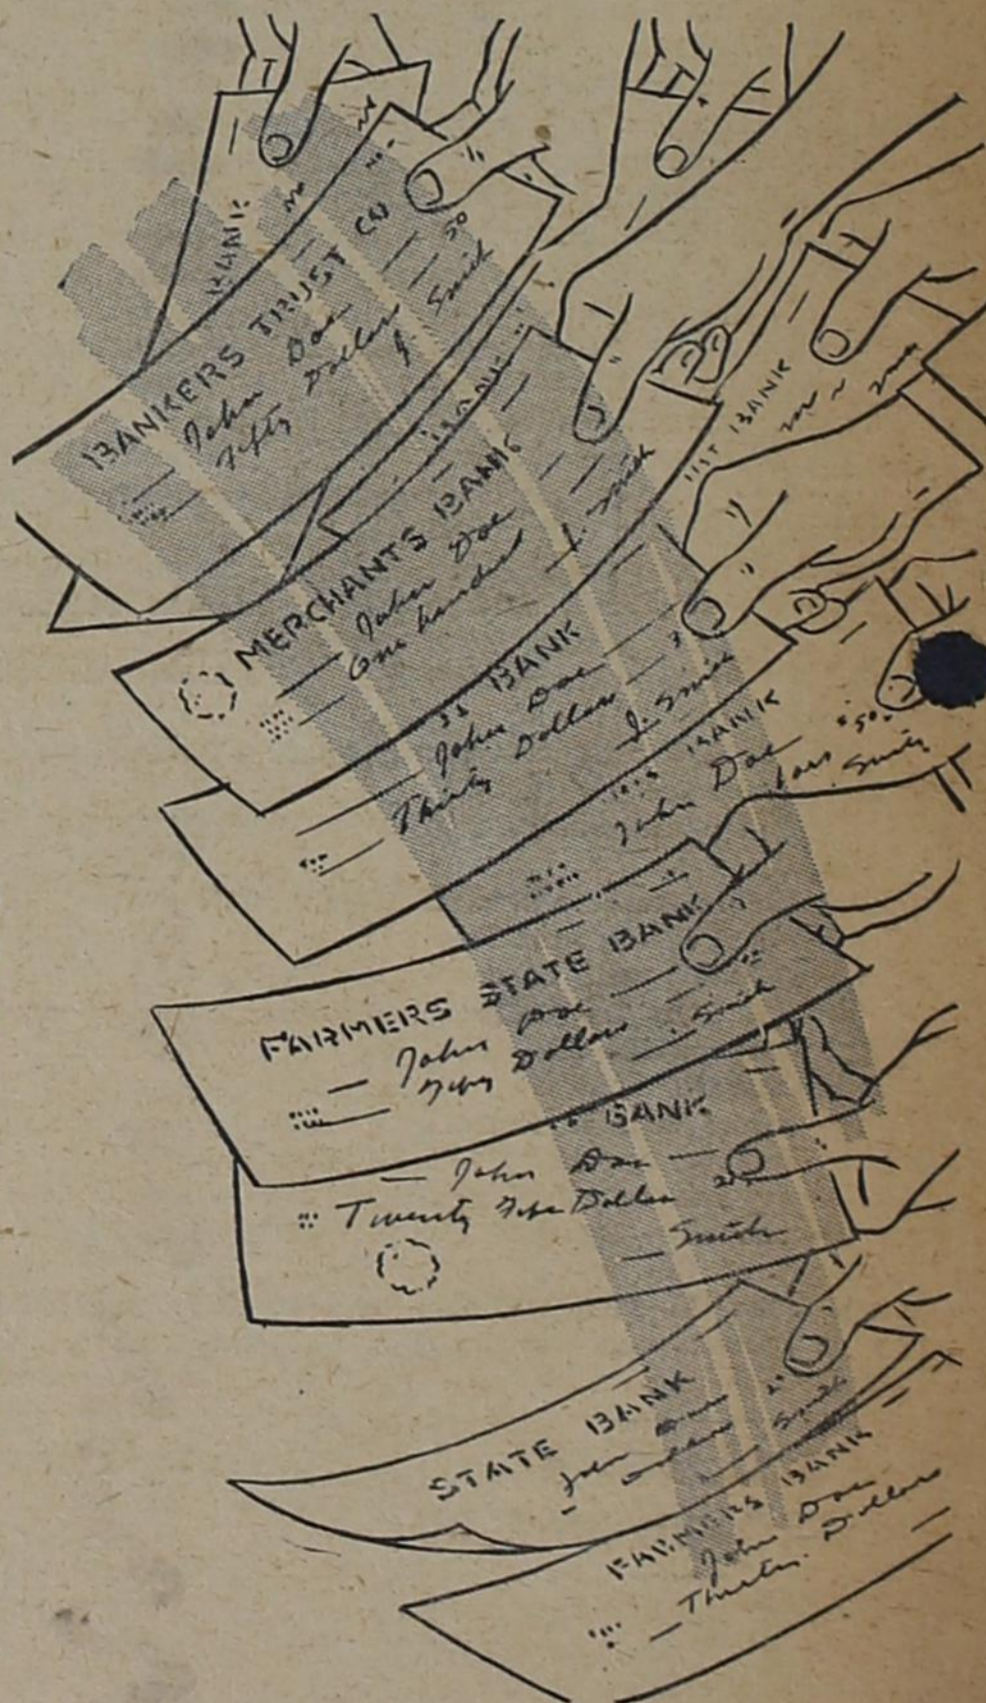 BANK
BANKERS TRUST CO
John Doe
Fifty Dollars 50
J. Smith
BANK
MERCHANTS BANK
John Doe
One hundred
J. Smith
BANK
BANK
John Doe
Thirty Dollars
J. Smith
BANK
John Doe
50
Smith
FARMERS STATE BANK
John Doe
Dollars
Smith
BANK
John Doe
Twenty Five Dollars
Smith
STATE BANK
John
Smith
FARMERS BANK
John Doe
Thirty Dollars